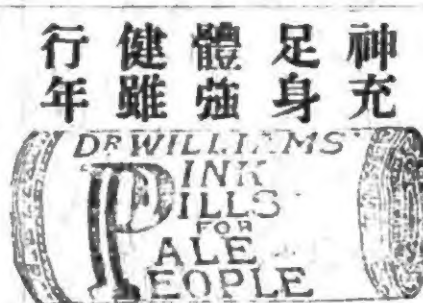 神充
足身
體強
健雖
行年
DR WILLIAMS'
PINK
PILLS
FOR
PALE
PEOPLE